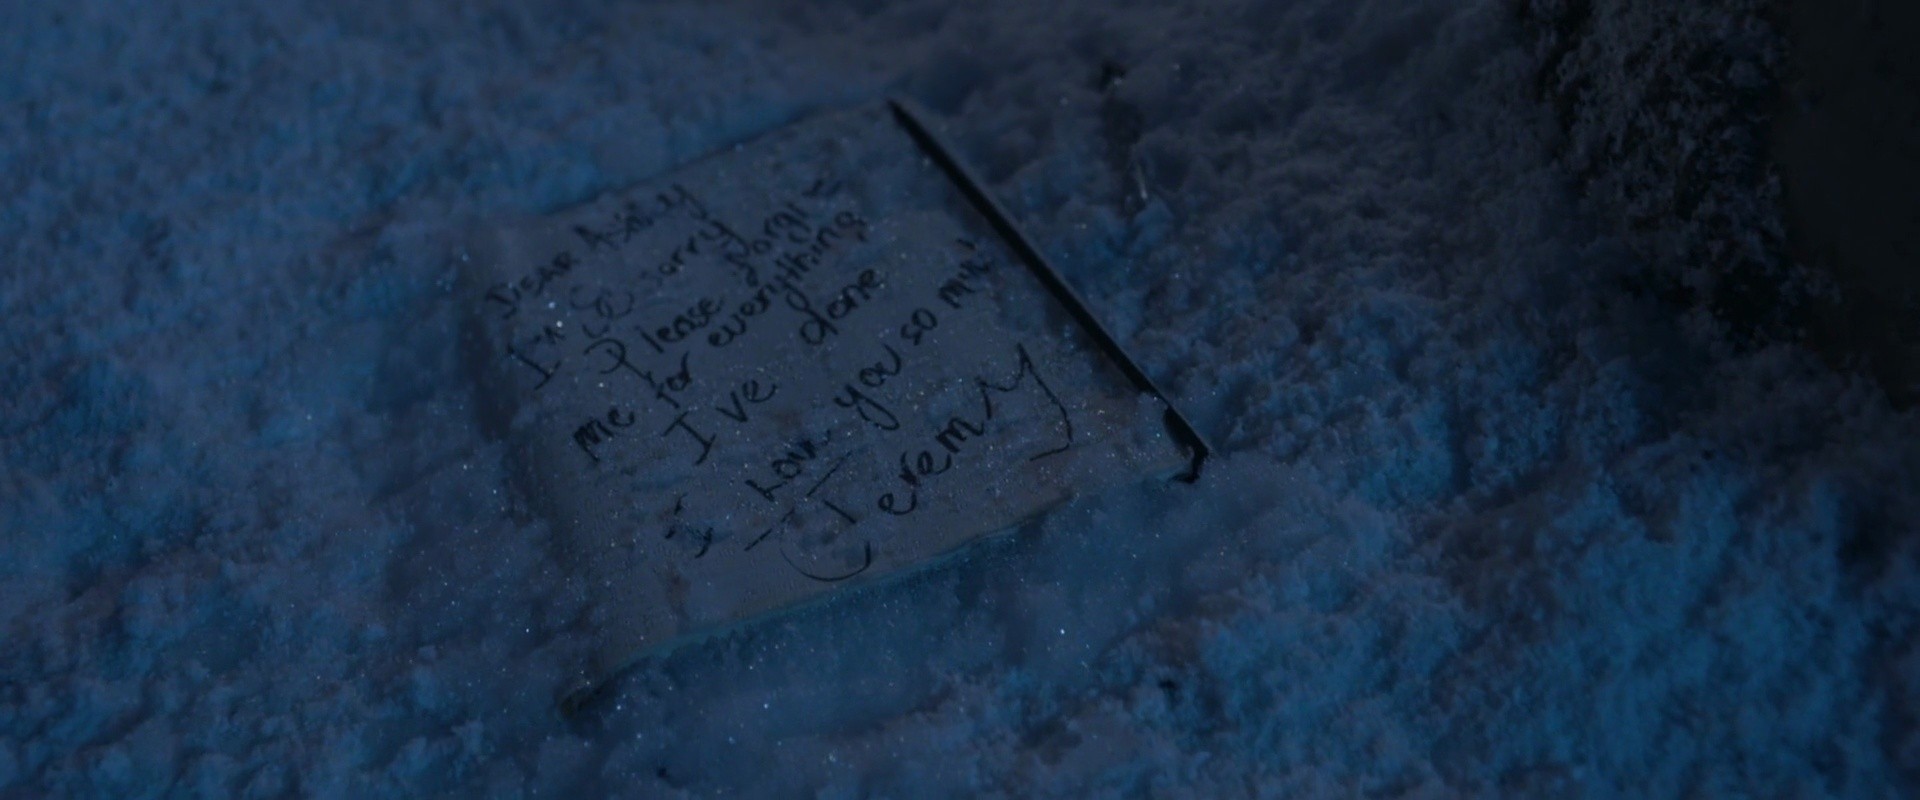 Dear
I'm So sorry
Please forgive
me for everything
I've done
I Love you so much
Jeremy